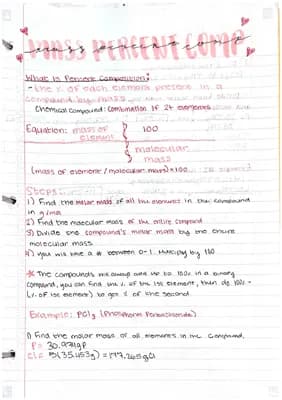 MASS PERCENT COMP
mass percent comp
What is Percent Composition?
- the % of each element present in a
compound by mass
Chemical Compound: Combination of 2+ elements
Equation: mass of element } 100
molecular mass
(mass of element / molecular mass) × 100
Steps:
1) Find the molar mass of all the elements in the compound
in g/mol
2) Find the molecular mass of the entire compound
3) Divide the compound's molar mass by the entire
molecular mass
4) you will have a # between 0-1. Multiply by 100
* The compounds will always add up to 100%. In a binary
compound, you can find the % of the 1st element, then do 100% -
(% of 1st element) to get % of the second
Example: PCl5 (Phosphorus Pentachloride)
1) Find the molar mass of all elements in the compound.
P = 30.974gP
Cl = 5(35.453g) = 177.265gCl